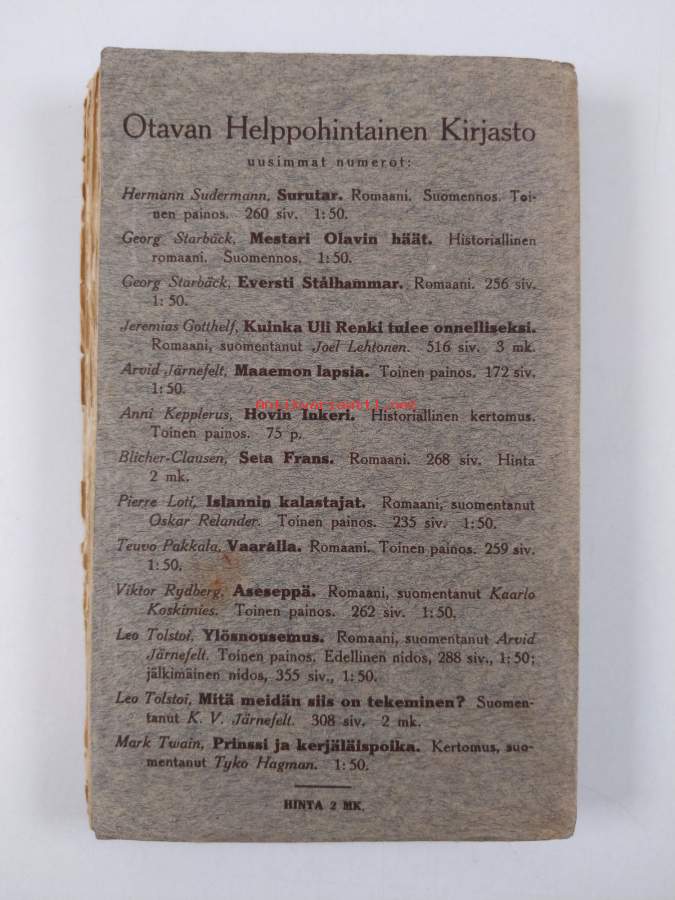 Otavan Helppohintainen Kirjasto
uusimmat numerot:
Hermann Sudermann, Surutar. Romaani. Suomennos. Toi-
nen painos. 260 siv. 1:50.
Georg Starbäck, Mestari Olavin häät. Historiallinen
romaani. Suomennos, 1:50.
Georg Starbäck, Eversti Stålhammar. Romaani. 256 siv.
1:50.
Jeremias Gotthelf, Kuinka Uli Renki tulee onnelliseksi.
Romaani, suomentanut Joel Lehtonen. 516 siv. 3 mk.
Arvid Järnefelt, Maaemon lapsia. Toinen painos. 172 siv.
1:50.
antikvariaatti.net
Anni Kepplerus, Hovin Inkeri. Historiallinen kertomus.
Toinen painos. 75 p.
Blicher-Clausen, Setä Frans. Romaani. 268 siv. Hinta
2 mk.
Pierre Loti, Islannin kalastajat. Romaani, suomentanut
Oskar Relander. Toinen painos. 235 siv. 1:50.
Teuvo Pakkala, Vaaralla. Romaani. Toinen painos. 259 siv.
1:50.
Viktor Rydberg, Aseseppä. Romaani, suomentanut Kaarlo
Koskimies. Toinen painos. 262 siv. 1:50.
Leo Tolstoi, Ylösnousemus. Romaani, suomentanut Arvid
Järnefelt. Toinen painos, Edellinen nidos, 288 siv., 1:50;
jälkimäinen nidos, 355 siv., 1:50.
Leo Tolstoi, Mitä meidän siis on tekeminen? Suomen-
tanut K. V. Järnefelt. 308 siv. 2 mk.
Mark Twain, Prinssi ja kerjäläispoika. Kertomus, suo-
mentanut Tyko Hagman. 1:50.
HINTA 2 MK.